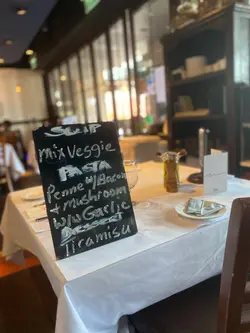 SOUP
Mix Veggie
PASTA
Penne w/ Bacon
+ mushroom
w/ Garlic
Dessert
Tiramisu